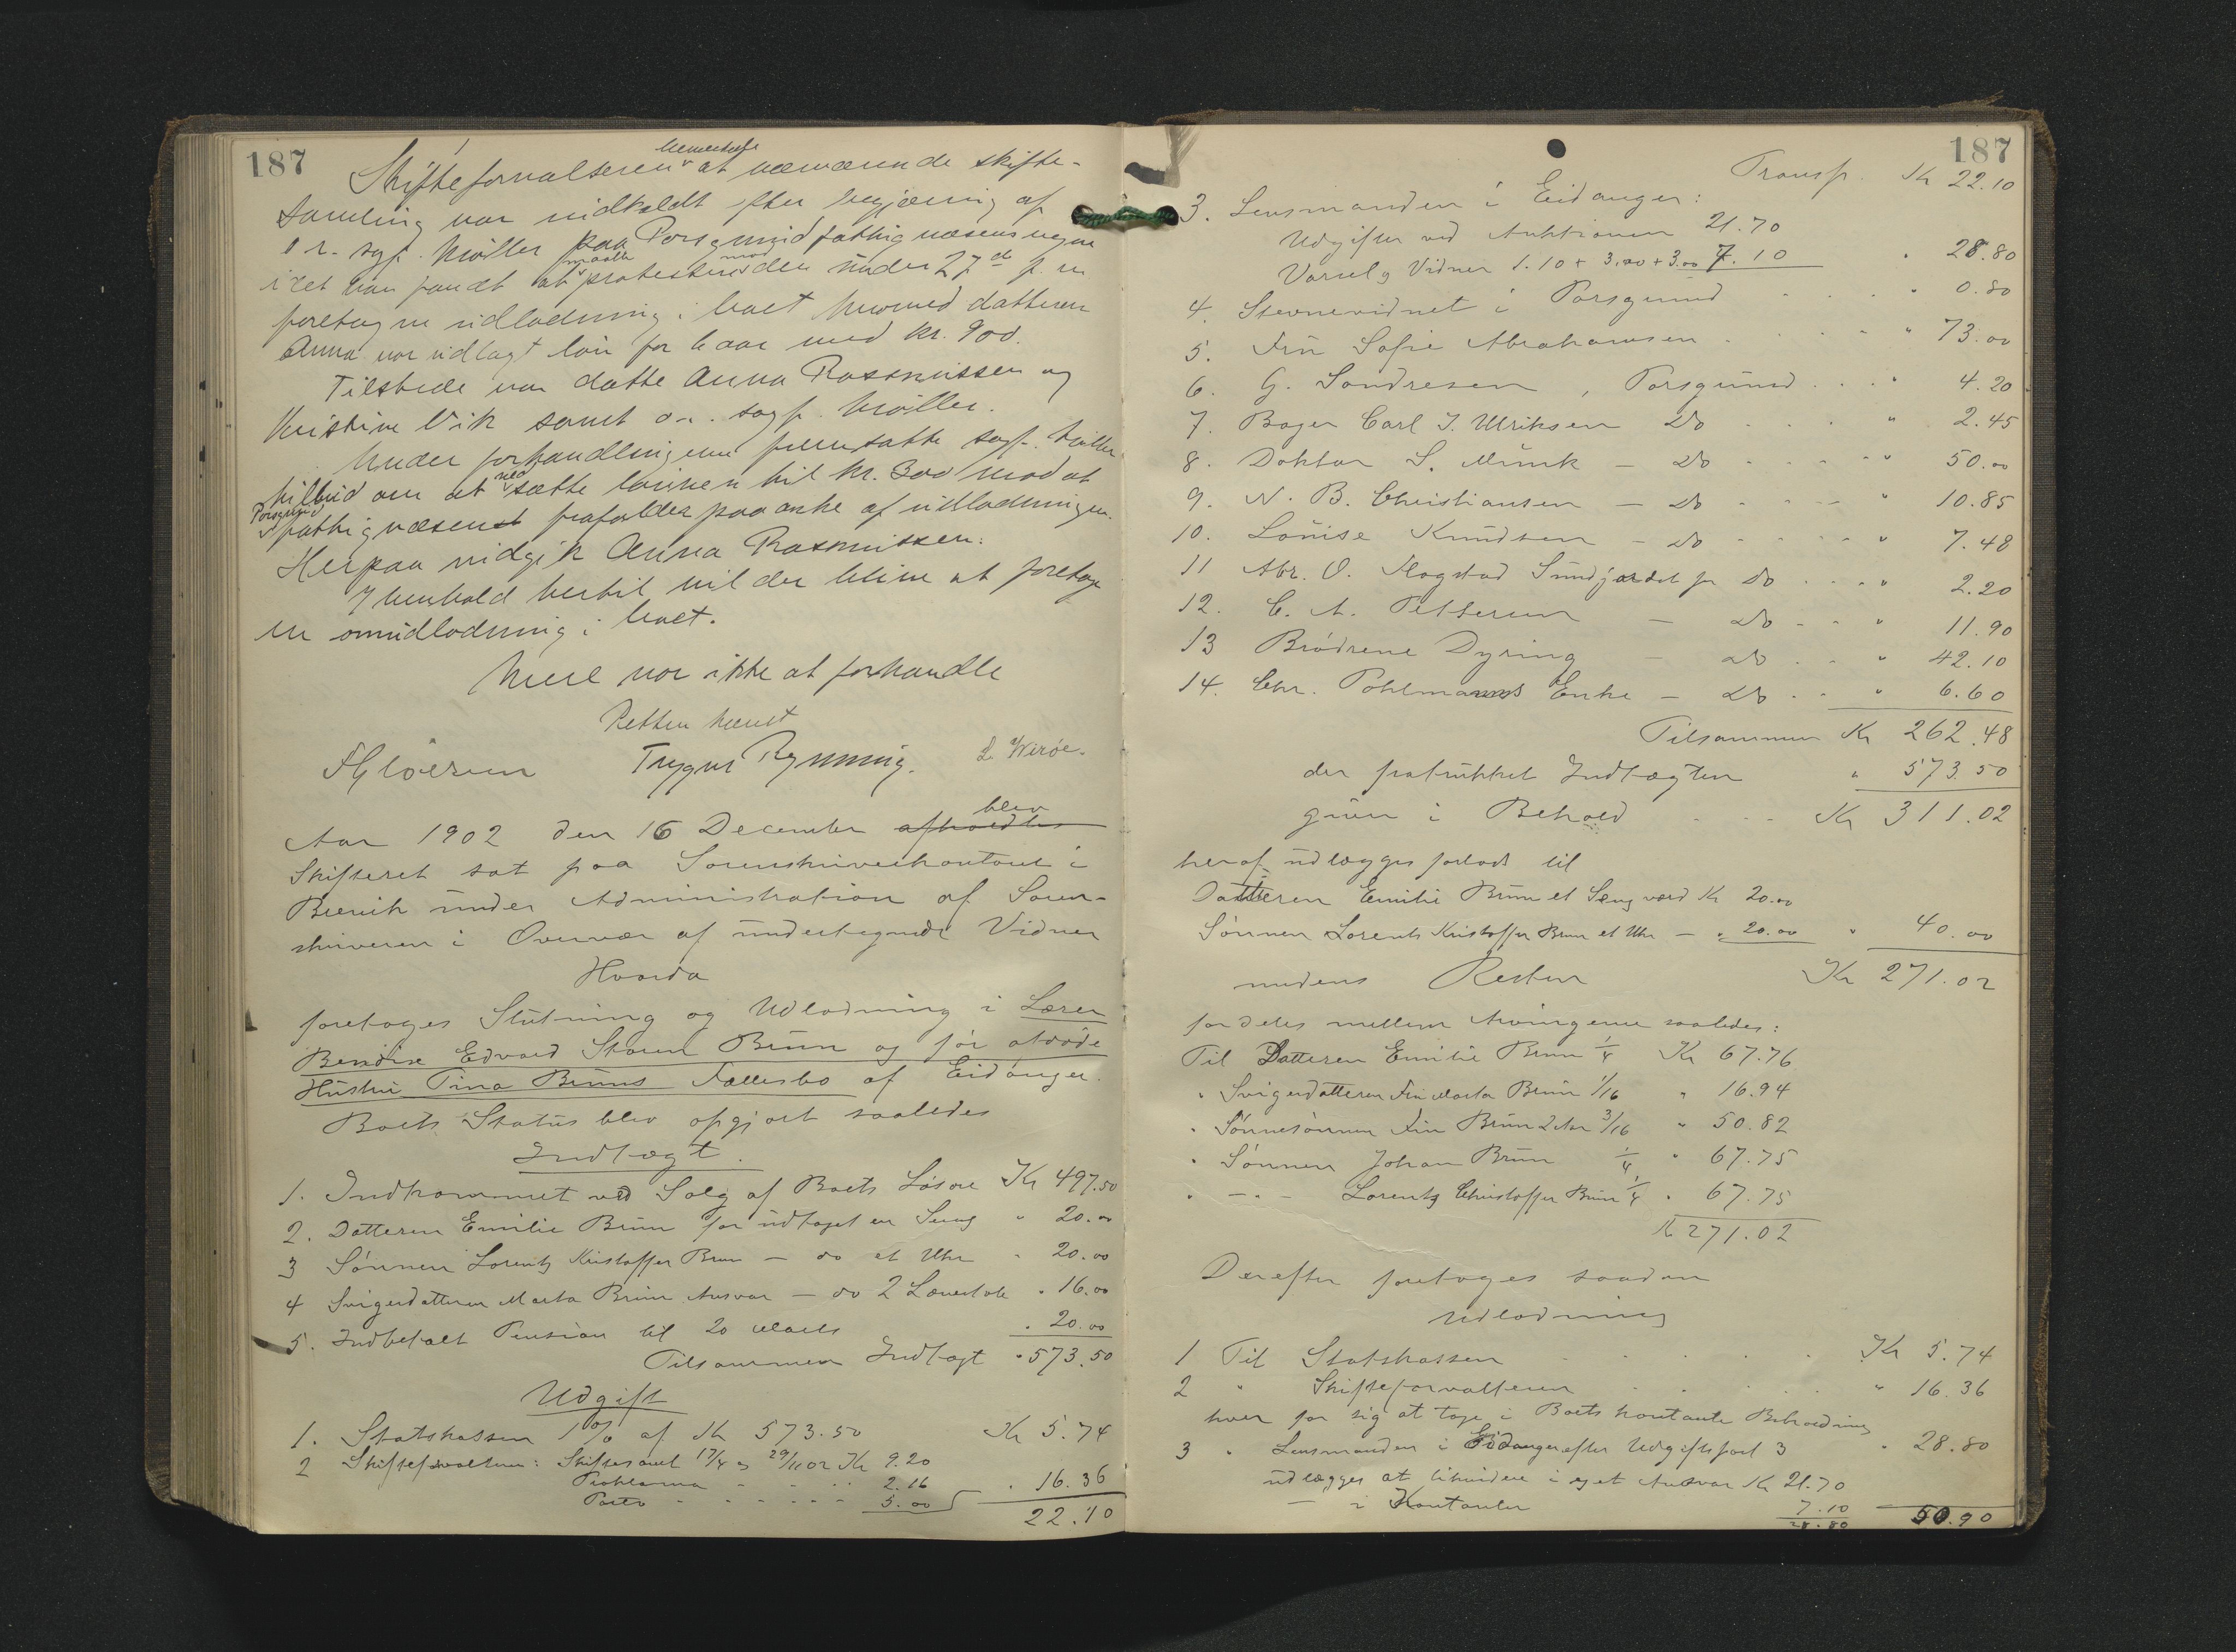 187
Skifteforvalteren bemærkede at nærværende skifte-
samling var indkaldt efter begjæring af
o.r. sagf. Møller paa Porsgrund fattigvæsens vegne
idet han fandt at maatte protestere mod den under 27de f. m.
foretagne udlodning i boet hvorved datteren
Anna var udlagt løn for 6 aar med kr. 900.
Tilstede var datte Anna Rasmussen og
Kristine Vik samt o.r. sagf. Møller.
Under forhandlingerne fremsatte sagf. Møller
tilbud om at nedsætte lønnen til kr. 300 mod at
Porsgrund fattigvæsenet frafalder paaanke af udlodningen.
Herpaa indgik Anna Rasmussen.
I henhold hertil vil der blive at foretage
en omudlodning i boet.
Mere var ikke at forhandle
Retten hævet
Trygve Rynning. L. Wirøe.
Aar 1902 den 16 December afholdtes blev
Skifteret sat paa Sorenskriverkontoret i
Brevik under Administration af Soren-
skriveren i Overvær af undertegnede Vidner
Hvorda
foretoges Slutning og Udlodning i Lærer
Bendixe Edvard Storm Bruun og før afdøde
Hustru Tina Bruuns Fællesbo af Eidanger.
Boets Status blev opgjort saaledes
Indtægt.
1. Indkommet ved Salg af Boets Løsøre Kr 497.50
2. Datteren Emilie Bruun har udtaget en Seng " 20.00
3 Sønnen Lorentz Kristoffer Bruun — do et Uhr " 20.00
4 Svigerdatteren Marta Bruun Ansvar — do 2 Lænestole " 16.00
5. Indbetalt Pension til 20 Marts " 20.00
Tilsammen Indtægt " 573.50
Udgift
1. Statskassen 1% af Kr 573.50 Kr 5.74
2 Skifteforvalteren: Skiftesaml 17/4 og 29/11 02 Kr 9.20
Proklama - - - 2.16 " 16.36
Porto - - - - - - 5.00
22.10
187
Transp. Kr 22.10
3. Lensmanden i Eidanger:
Udgifter ved Auktionen 21.70
Varsel og Vidner 1.10 + 3.00 + 3.00 7.10 " 28.80
4. Stevnevidnet i Porsgrund " 0.80
5. Fru Sofie Abrahamsen " 73.00
6. G. Sondresen, Porsgrund " 4.20
7. Bager Carl J. Ulriksen do " 2.45
8. Doktor S. Munk — do " 50.00
9. N. B. Christiansen — do " 10.85
10. Louise Knudsen — do " 7.48
11 Abr. O. Flogstad Sundjordet pr do " 2.20
12. C. A. Pettersen — do " 11.90
13 Brødrene Dyring — do " 42.10
14. Chr. Pohlmanns Enke — do " 6.60
Tilsammen Kr 262.48
der fratrukket Indtægten " 573.50
giver i Behold Kr 311.02
heraf udlægges forlods til
Datteren Emilie Bruun et Seng værd Kr 20.00
Sønnen Lorents Kristoffer Bruun et Uhr — " 20.00 " 40.00
medens Resten Kr 271.02
fordeles mellem Arvingerne saaledes:
Til Datteren Emilie Bruun 1/4 Kr 67.76
" Svigerdatteren Fru Marta Bruun 1/16 " 16.94
" Sønnesønnen Finn Bruun 3/16 " 50.82
" Sønnen Johan Bruun 1/4 " 67.75
" — " — Lorentz Christoffer Bruun 1/4 " 67.75
Kr 271.02
Derefter foretoges saadan
Udlodning
1 Til Statskassen Kr 5.74
2 " Skifteforvalteren " 16.36
hver for sig at tage i Boets kontante Beholdning
3 " Lensmanden i Eidanger efter Udgiftspost 3 " 28.80
udlægges at likvidere i eget Ansvar Kr 21.70
— i Kontanter 7.10
28.80 50.90